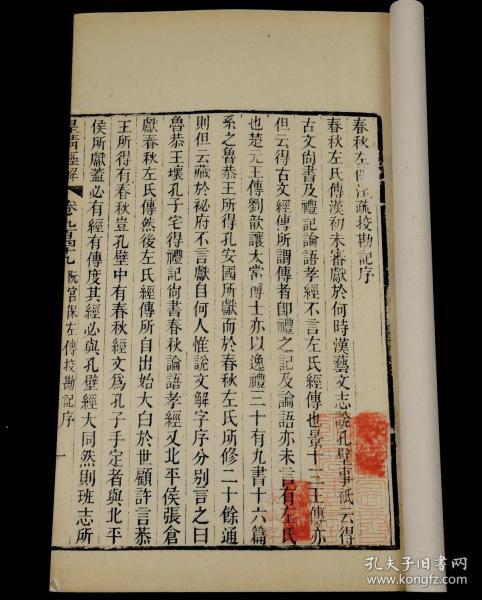 春秋左傳注疏挍勘記序
春秋左氏傳漢初未審獻於何時漢藝文志說孔壁事祇云得
古文尙書及禮記論語孝經不言左氏經傳也景十三王傳亦
但云得古文經傳所謂傳者卽禮之記及論語亦未言有左氏
也楚元王傳劉歆讓太常博士亦以逸禮三十有九書十六篇
系之魯恭王所得孔安國所獻而於春秋左氏所修二十餘通
則但云藏於祕府不言獻自何人惟說文解字序分別言之曰
魯恭王壞孔子宅得禮記尙書春秋論語孝經又北平侯張倉
獻春秋左氏傳然後左氏經傳所自出始大白於世顧許言恭
王所得有春秋豈孔壁中有春秋經文爲孔子手定者與北平
侯所獻蓋必有經有傳度其經必與孔壁經大同然則班志所
皇清經解 卷九百四十九 阮宮保左傳挍勘記序
孔夫子旧书网
www.kongfz.com